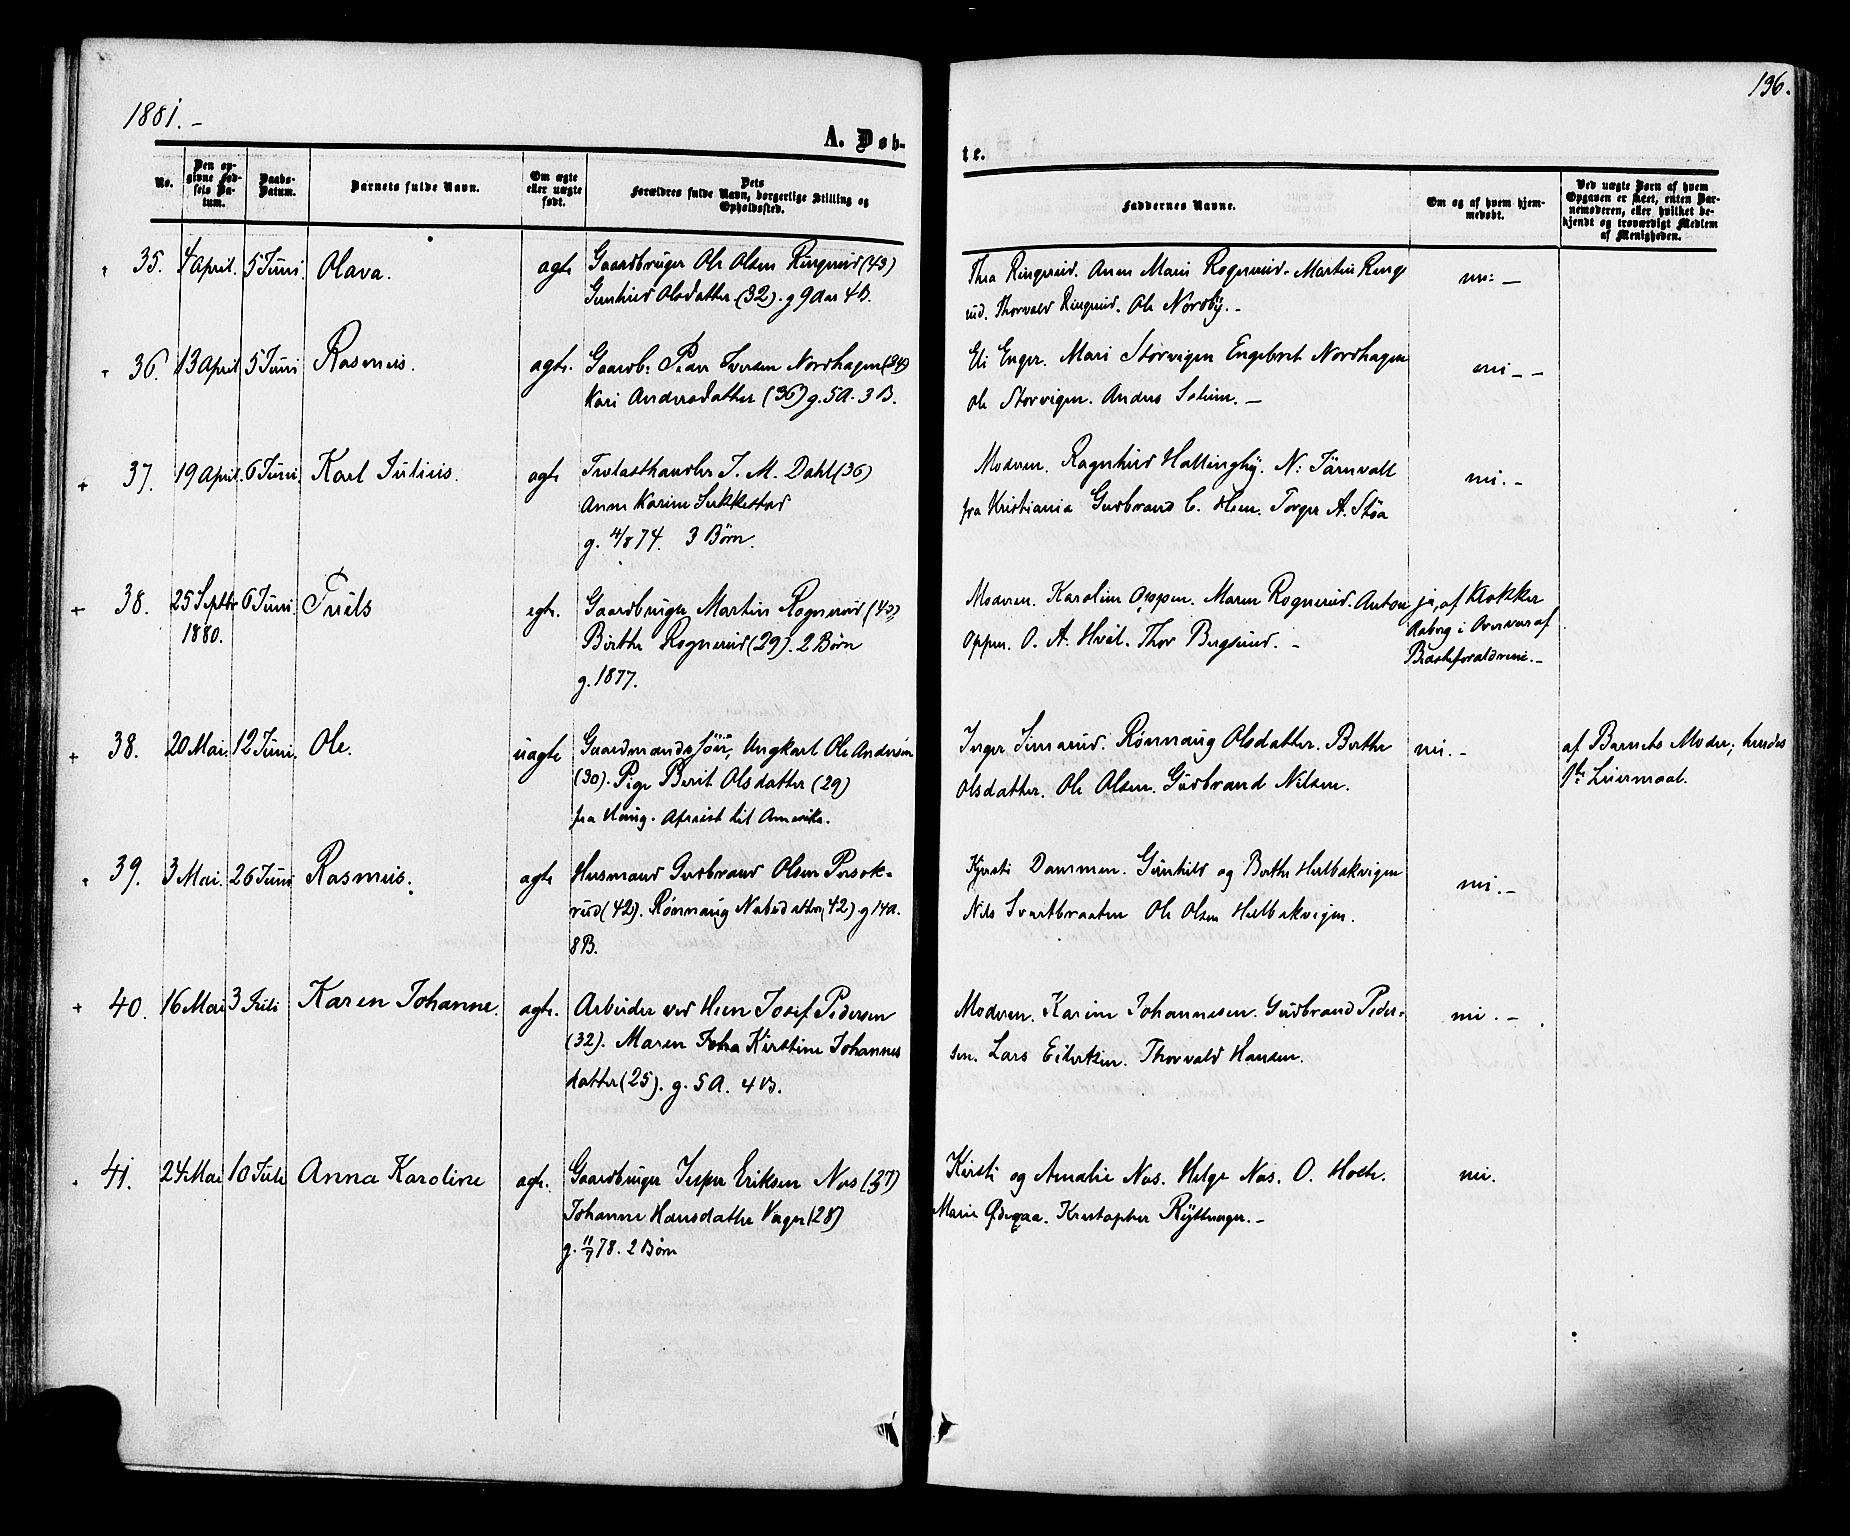 1881. -
196.
A. Døb-
te.
No.
Den op-
givne Fød-
sels Da-
tum.
Daabs-
Datum.
Barnets fulde Navn.
Om ægte
eller uægte
født.
Dets
Forældres fulde Navn, borgerlige Stilling og
Opholdssted.
Faddernes Navne.
Om og af hvem hjem-
medøbt.
Ved uægte Børn af hvem
Opgaven er skeet, enten Bar-
nemoderen, eller hvilket be-
kjendt og troværdigt Medlem
af Menigheden.
35. 4 April. 5 Juni Olava. ægte Gaardbruger Ole Olsen Ringerud (43)
Gunhild Olsdatter (32). g 9 Aar 4 B.
Thea Ringerud. Anne Marie Rognerud. Martin Ringe
rud. Thorvald Ringerud. Ole Nordby. -
nei -
36. 13 April 5 Juni Rasmus. ægte. Gaardb: Peder Iversen Nordhagen (34)
Kari Andersdatter (36) g. 5 A. 3 B.
Eli Enger. Mari Storvigen Engebret Nordhagen
Ole Storvigen. Anders Solum. -
nei - -
37. 19 April. 6 Juni Karl Julius. ægte Trælasthandler J. M. Dahl (36)
Anne Karine Sukkestad
g. 4/8 74. 3 Børn.
Moderen. Ragnhild Hallingby. N: Järnvall
fra Kristiania Gudbrand C. Hen. Torger A. Støa
nei. -
38. 25 Septbr 6 Juni Truls egte. Gaardbruger Martin Rognerud (43)
1880.
Birthe Rognerud (29). 2 Børn
g. 1877.
Moderen. Karoline Oppen. Maren Rognerud. Anton
Oppen. O. A. Hval. Thor Bergsund. -
ja, af Klokker
Aaberg i Overvær af
Bedsteforældrene. -
38. 20 Mai. 12 Juni. Ole. uægte Gaardmandssøn, Ungkarl Ole Andersen
(30). Pige Berit Olsdatter (29)
fra Haug. Afreist til Amerika.
Inger Simerud. Rønnaug Olsdatter. Berthe
Olsdatter. Ole Olsen. Gudbrand Nilsen.
nei. -
af Barnets Moder; hendes
1ste Leiermaal.
39. 3 Mai. 26 Juni Rasmus. ægte Husmand Gudbrand Olsen Persok-
rud (42). Rønnaug Nabsdatter (42) g 14 A.
8 B.
Kjersti Dammen. Gunhild og Berthe Halbakvigen
Nils Svartbraaten Ole Olsen Halbakvigen.
nei. -
40. 16 Mai 3 Juli Karen Johanne. ægte. Arbeider ved Hen Josef Pedersen
(32). Maren Kirstine Johannes
datter (25). g. 5 A. 4 B.
Moderen. Karine Johannesen. Gudbrand Peder-
sen. Lars Eilertsen. Thorvald Hansen.
nei. -
41. 24 Mai 10 Juli Anna Karoline ægte. Gaardbruger Jesper Eriksen Næs (37)
Johanne Hansdatter Vager (28)
g. 11/7 78. 2 Børn
Kirsti og Amalie Næs. Helge Næs. O. Hoel.
Marie Ødegaa. Kristopher Ryttrager. -
nei.